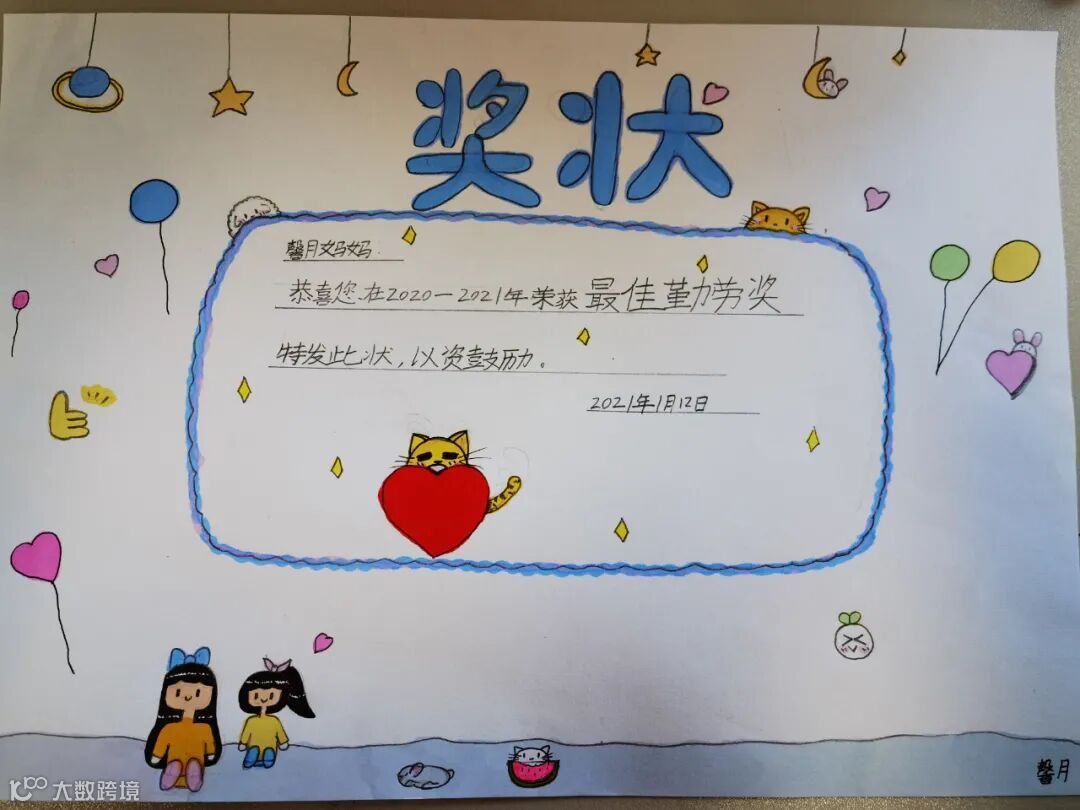 奖状
馨月妈妈:
恭喜您在2020-2021年荣获最佳勤劳奖
特发此状,以资鼓励。
2021年1月12日
馨月
大数跨境